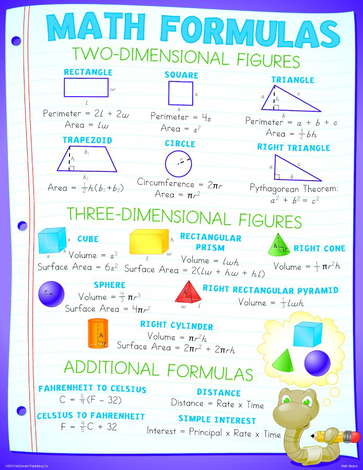 MATH FORMULAS
TWO-DIMENSIONAL FIGURES
RECTANGLE
Perimeter = 2l + 2w
Area = lw
SQUARE
Perimeter = 4s
Area = s²
TRIANGLE
Perimeter = a + b + c
Area = ½bh
TRAPEZOID
Area = ½h(b₁+b₂)
CIRCLE
Circumference = 2πr
Area = πr²
RIGHT TRIANGLE
Pythagorean Theorem:
a² + b² = c²
THREE-DIMENSIONAL FIGURES
CUBE
Volume = s³
Surface Area = 6s²
RECTANGULAR
PRISM
Volume = lwh
Surface Area = 2(lw + hw + hl)
RIGHT CONE
Volume = ⅓πr²h
SPHERE
Volume = πr³
Surface Area = 4πr²
RIGHT RECTANGULAR PYRAMID
Volume = ⅓lwh
RIGHT CYLINDER
Volume = πr²h
Surface Area = 2πr² + 2πrh
ADDITIONAL FORMULAS
FAHRENHEIT TO CELSIUS
C = (F - 32)
CELSIUS TO FAHRENHEIT
F = C + 32
DISTANCE
Distance = Rate x Time
SIMPLE INTEREST
Interest = Principal x Rate x Time